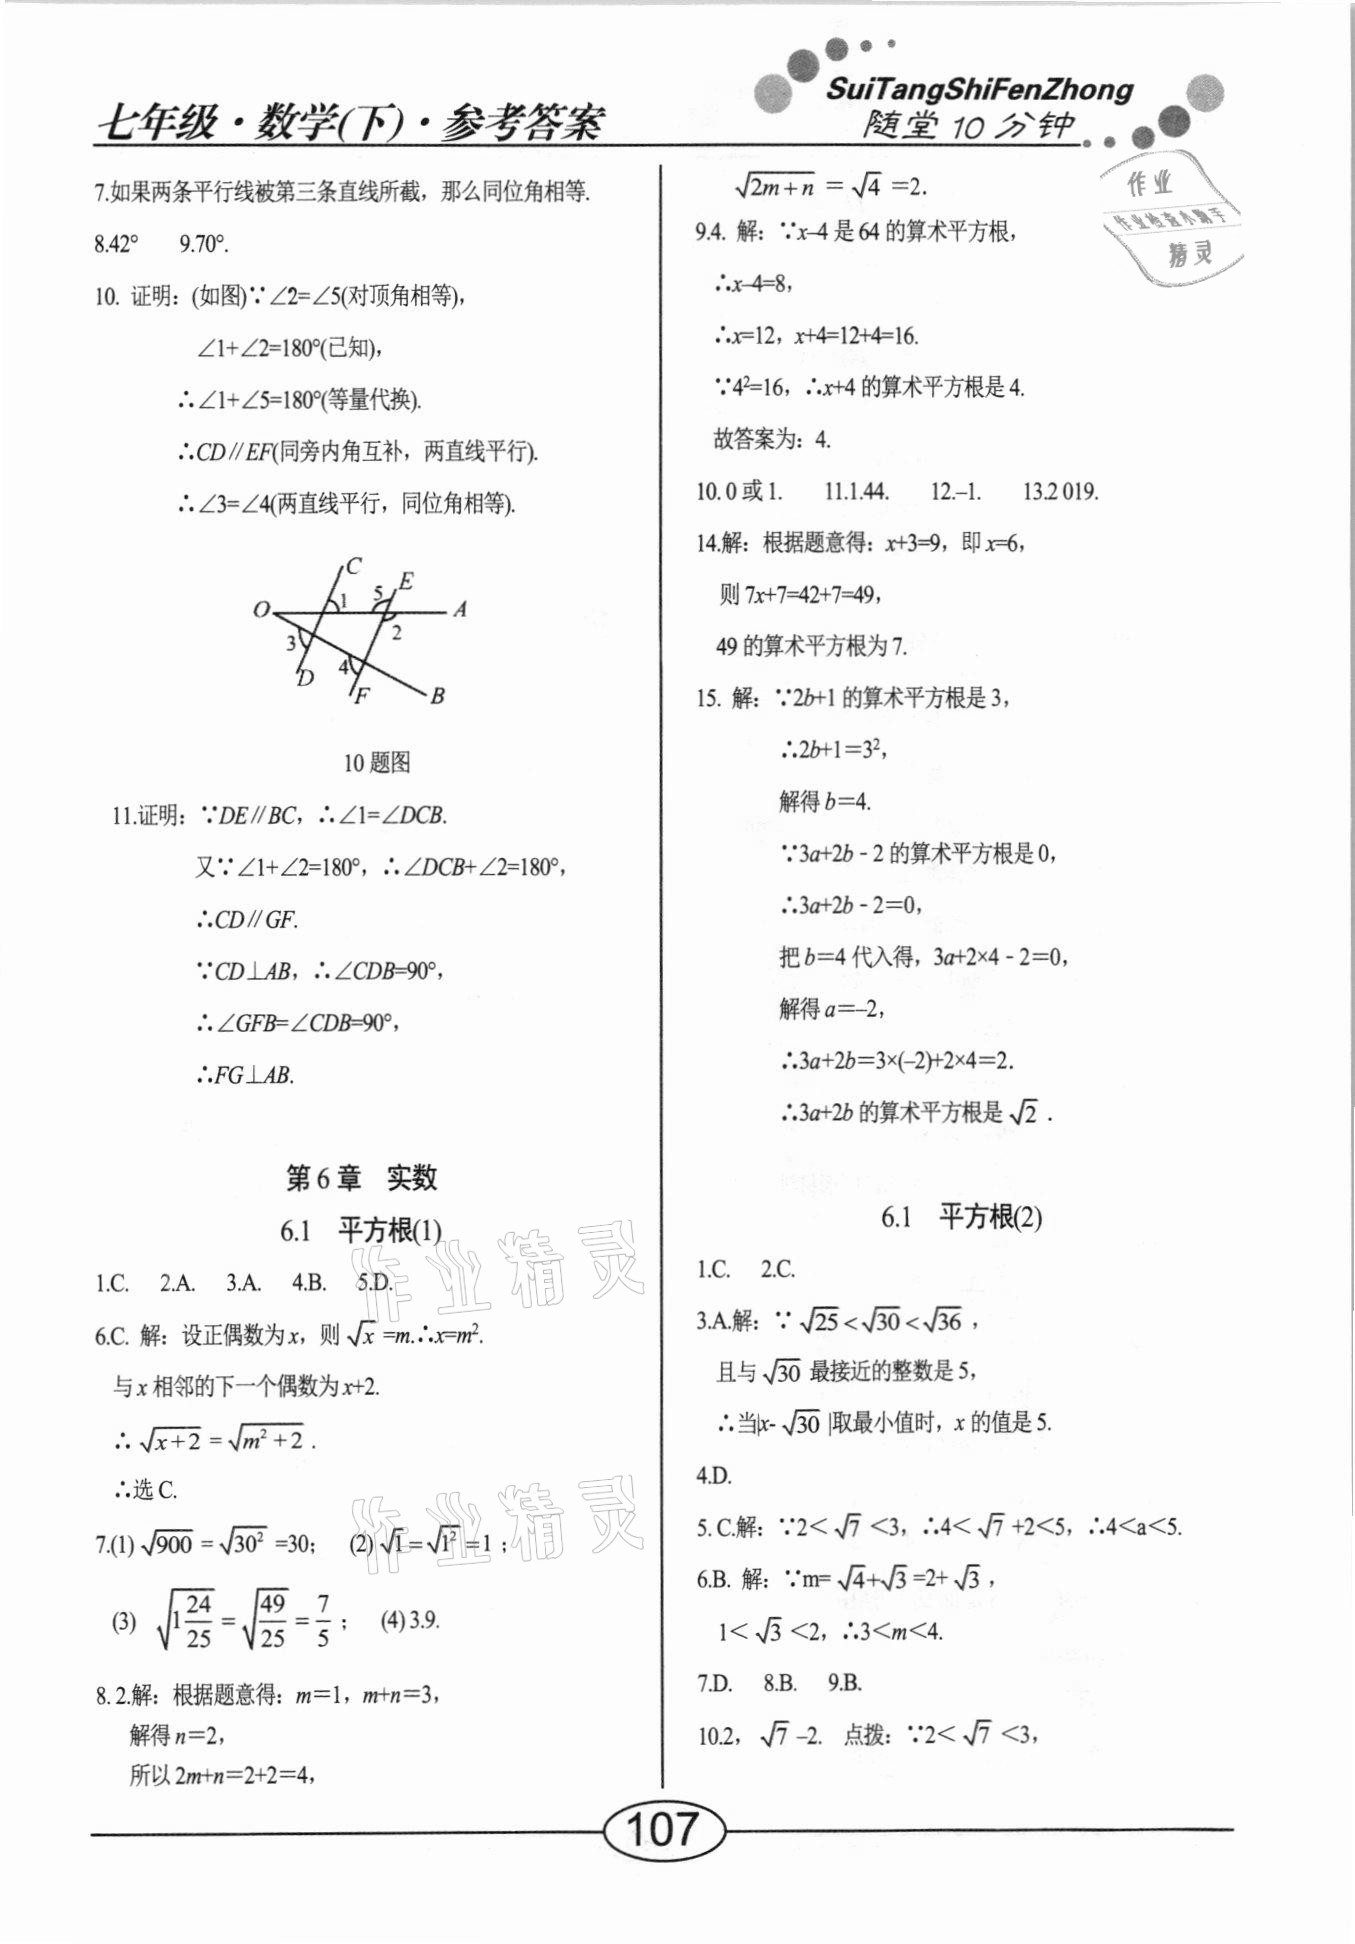 七年级·数学(下)·参考答案
SuiTangShiFenZhong
随堂10分钟
作业
作业检查小助手
精灵
7.如果两条平行线被第三条直线所截，那么同位角相等.
8.42°  9.70°.
10. 证明：(如图)∵∠2=∠5(对顶角相等)，
∠1+∠2=180°(已知)，
∴∠1+∠5=180°(等量代换).
∴CD∥EF(同旁内角互补，两直线平行).
∴∠3=∠4(两直线平行，同位角相等).
C
E
O
1
5
A
3
2
D
4
F
B
10题图
11.证明：∵DE∥BC，∴∠1=∠DCB.
又∵∠1+∠2=180°，∴∠DCB+∠2=180°，
∴CD∥GF.
∵CD⊥AB，∴∠CDB=90°，
∴∠GFB=∠CDB=90°，
∴FG⊥AB.
第6章 实数
6.1 平方根(1)
1.C.  2.A.  3.A.  4.B.  5.D.
6.C. 解：设正偶数为x，则√x=m.∴x=m².
与x相邻的下一个偶数为x+2.
∴√(x+2)=√(m²+2).
∴选C.
7.(1)√900=√30²=30；  (2)√1=√1²=1；
(3) √(1 24/25)=√(49/25)=7/5；  (4)3.9.
8. 2.解：根据题意得：m=1，m+n=3，
解得n=2，
所以2m+n=2+2=4，
√(2m+n)=√4=2.
9.4. 解：∵x–4是64的算术平方根，
∴x–4=8，
∴x=12，x+4=12+4=16.
∵4²=16，∴x+4的算术平方根是4.
故答案为：4.
10. 0或1.  11.1.44.  12.–1.  13.2 019.
14.解：根据题意得：x+3=9，即x=6，
则7x+7=42+7=49，
49的算术平方根为7.
15. 解：∵2b+1的算术平方根是3，
∴2b+1=3²，
解得b=4.
∵3a+2b-2的算术平方根是0，
∴3a+2b-2=0，
把b=4代入得，3a+2×4-2=0，
解得a=–2，
∴3a+2b=3×(–2)+2×4=2.
∴3a+2b的算术平方根是√2.
6.1 平方根(2)
1.C.  2.C.
3.A.解：∵√25<√30<√36，
且与√30最接近的整数是5，
∴当|x-√30|取最小值时，x的值是5.
4.D.
5. C.解：∵2<√7<3，∴4<√7+2<5，∴4<a<5.
6.B. 解：∵m=√4+√3=2+√3，
1<√3<2，∴3<m<4.
7.D.  8.B.  9.B.
10.2，√7–2. 点拨：∵2<√7<3，
作业精灵
作业精灵
107